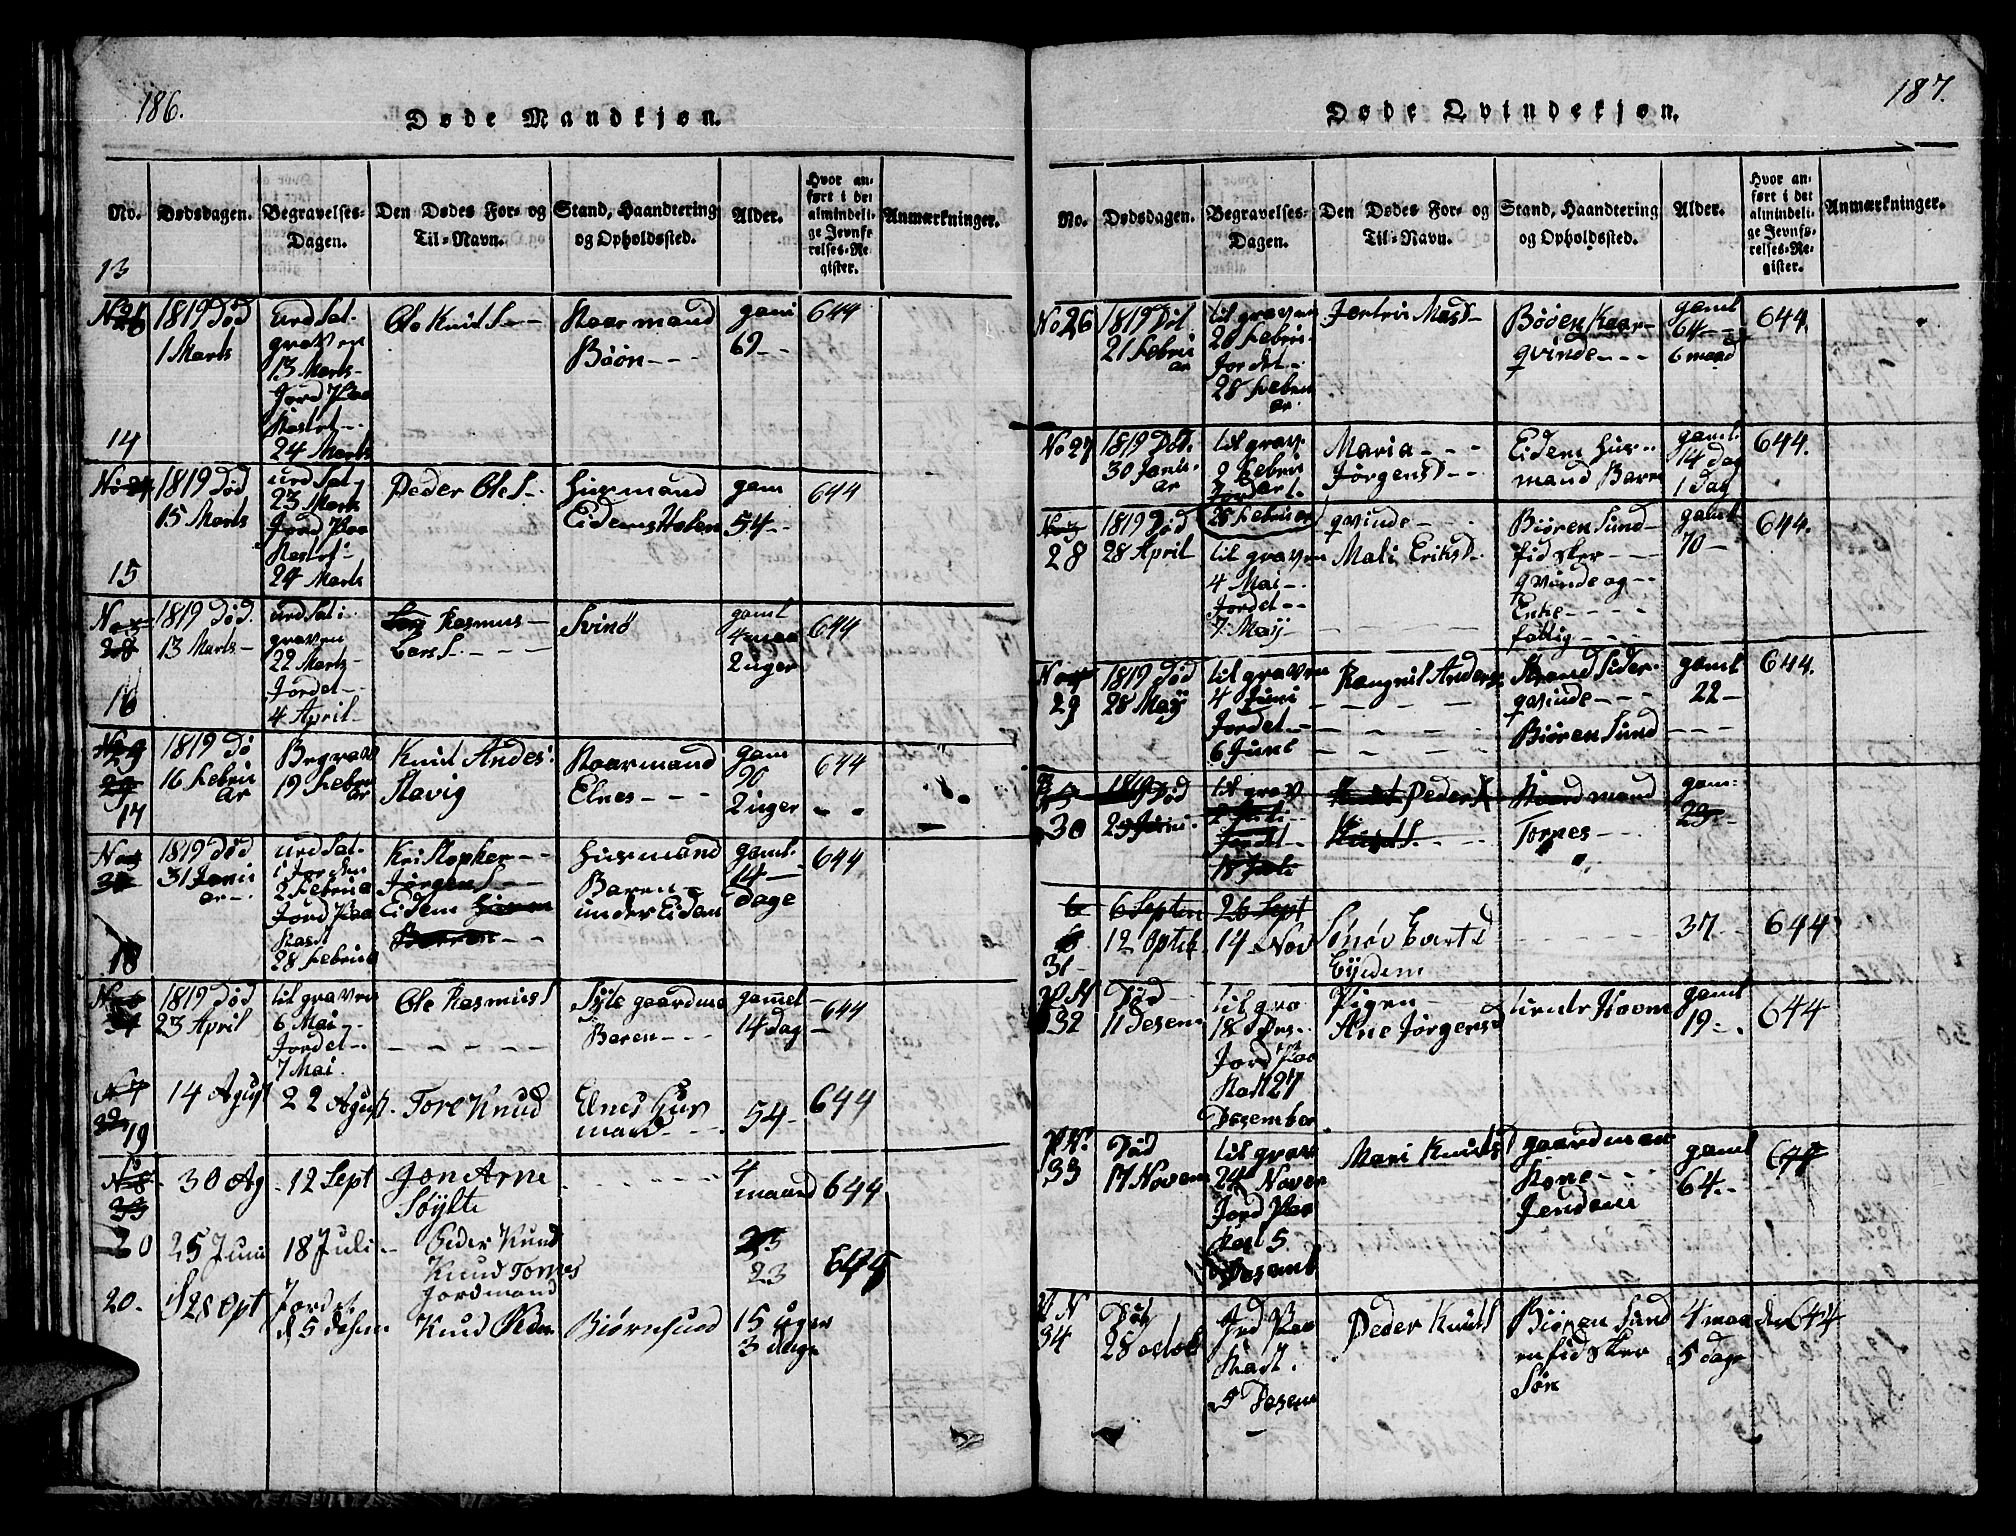 186.
Døde Mandkjøn.
No.
Dødsdagen.
Begravelses-
Dagen.
Den Dødes For- og
Til-Navn.
Stand, Haandtering
og Opholdssted.
Alder.
Hvor an-
ført i det
almindeli-
ge Jevnfø-
relses-Re-
gister.
Anmærkninger.
13
1819 Død
1 Marts
urdsat.
graven
13 Marts-
Jord Paa
Kastet-
24 Marts
Ole Knit S--
Kaarmand
Bøön---
gam
69--
644
14
1819 Død
15 Marts
urdsat
23 Marts
Jord Paa
Kastet
24 Marts
Peder Ole S-
Husmand
Eidems Holen
gam
54--
644
15
No
28
1819 Død.
13 Marts-
urdsat i
graven
22 Marts-
Jordet--
4 April-
Rasmus-
Lars S---
Svinø
gaml
4 maa
2 uger
644
16
No 9
1819 Dø
16 Febru
ar
Begraven
19 Febru
ar
Knut Andes:
Stavig
Kaarmand
Elnes---
gam
90
2 uger
644
17
1819 Død
31 Janu
ar--
urdsat.
i Jorden
2 Februa
Jord Paa
Kast
28 Februa
Kristopher--
Jørgen S--
Eidem
Husmand
Baren-
under Eidem
gaml.
14--
dage
644
18
1819 Død
23 April
til graven
6 Mai-
Jordet-
7 Mai.
Ole Rasmus S
gaardma
Baren---
gammel-
14 dag-
644
14 Agust
22 Agust.
Tore Knud
Elnes Hus
mand--
54-
644
19
30 Ag
12 Sept
Jon Arne
Søylte
4
maand
644
20
25 Juni
18 Juli-
Peder Knud
Knud Tornes
Jordmand
23
23
644
20.
d 28 Sept
Jordet
d 5 desem
Knud Peder
Biørnsund
15 uger
3 dage
187.
Døde Qvindekjøn.
No.
Dødsdagen.
Begravelses-
Dagen.
Den Dødes For- og
Til-Navn.
Stand, Haandtering
og Opholdssted.
Alder.
Hvor an-
ført i det
almindeli-
ge Jevnfø-
relses-Re-
gister.
Anmærkninger.
No 26
1819 Død
21 Febru
ar
til graven
26 Febru-
Jordet-
28 Febru
ar
Masd-
Bøven Kaar-
qvinde---
gaml
64--
6 maad
644.
No 27
1819 Død.
30 Janu-
ar
til grav
2 Febru
Jordet.
28 Februar
Maria---
Jørgensd--
Eidem Hus-
mand Barn
gaml.
14 dag
1 dag
644.
28
1819 Død
28 April
til graven
4 Mai-
Jordet--
7 Maij
qvinde---
Mali Eriksd-
Biøren Sund-
Fidsker---
qvinde og--
Enke----
fattig---
gamt
70-
644.
29
1819 Død
28 Maij
til graven
4 Juni
Jordet--
6 Juni
Rangnil Anders
Strand Sider-
qvinde---
Biøren Sund
gaml
22-
644.
30
1819 Død
29 Juni-
til grav
2 Juli-
Jordet-
18 Juli
Peder
Knut S.
Kaardmand
Tornes--
gam:
23-
6
6 Septem
26 Sept
31-
12 Optob
14 Nov
Sønøv Evartsd
Eijedem
37-
644
P N
32
Død
11 Desem
til gra
18 Des-
Jord Paa
Kast 27
Desember
Pigen-
Ane Jørgensd
under Hovne
gaml
19--.
644
P N:
33
Død
17 Novem
til grav
24 Novem
Jord Paa
Kast 5.
Desemb
Mari Knuts
gaardman
Kone---
Jendem
gaml
64--
644
P N
34
Død
28 octob
Jrd Paa
Kast.
5 Desem
Peder Knut S
Biøren Sund
en fidsker
Søn
4 maaden
5 dage
644